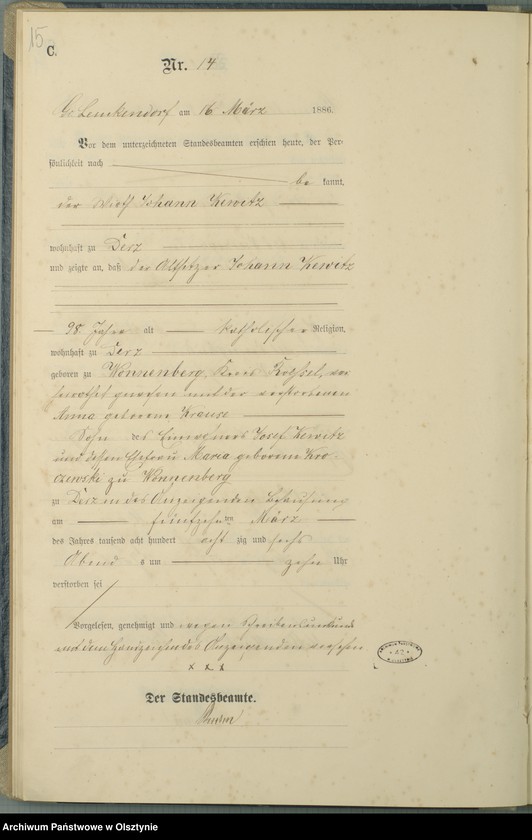 15
C.
Nr. 14
Gr. Lemkendorf am 16 März 1886.
Vor dem unterzeichneten Standesbeamten erschien heute, der Per-
sönlichkeit nach
be kannt,
der Wirth Johann Kewitz
wohnhaft zu Derz
und zeigte an, daß der Altsitzer Johann Kewitz
98 Jahre alt katholischer Religion,
wohnhaft zu Derz
geboren zu Wonnenberg, Kreis Roessel, ver
heirathet gewesen mit der verstorbenen
Anna geborene Krause
Sohn des Einwohners Josef Kewitz
und dessen Ehefrau Maria geborene
zu Wonnenberg
zu Derz in des Anzeigenden Behausung
am fünfzehnten März
des Jahres tausend acht hundert acht zig und sechs
Abend s um zehn Uhr
verstorben sei
Vorgelesen, genehmigt und wegen Schreibensunkunde
mit dem Handzeichen des Anzeigenden versehen
x x x
Der Standesbeamte.
Archiwum Państwowe w Olsztynie